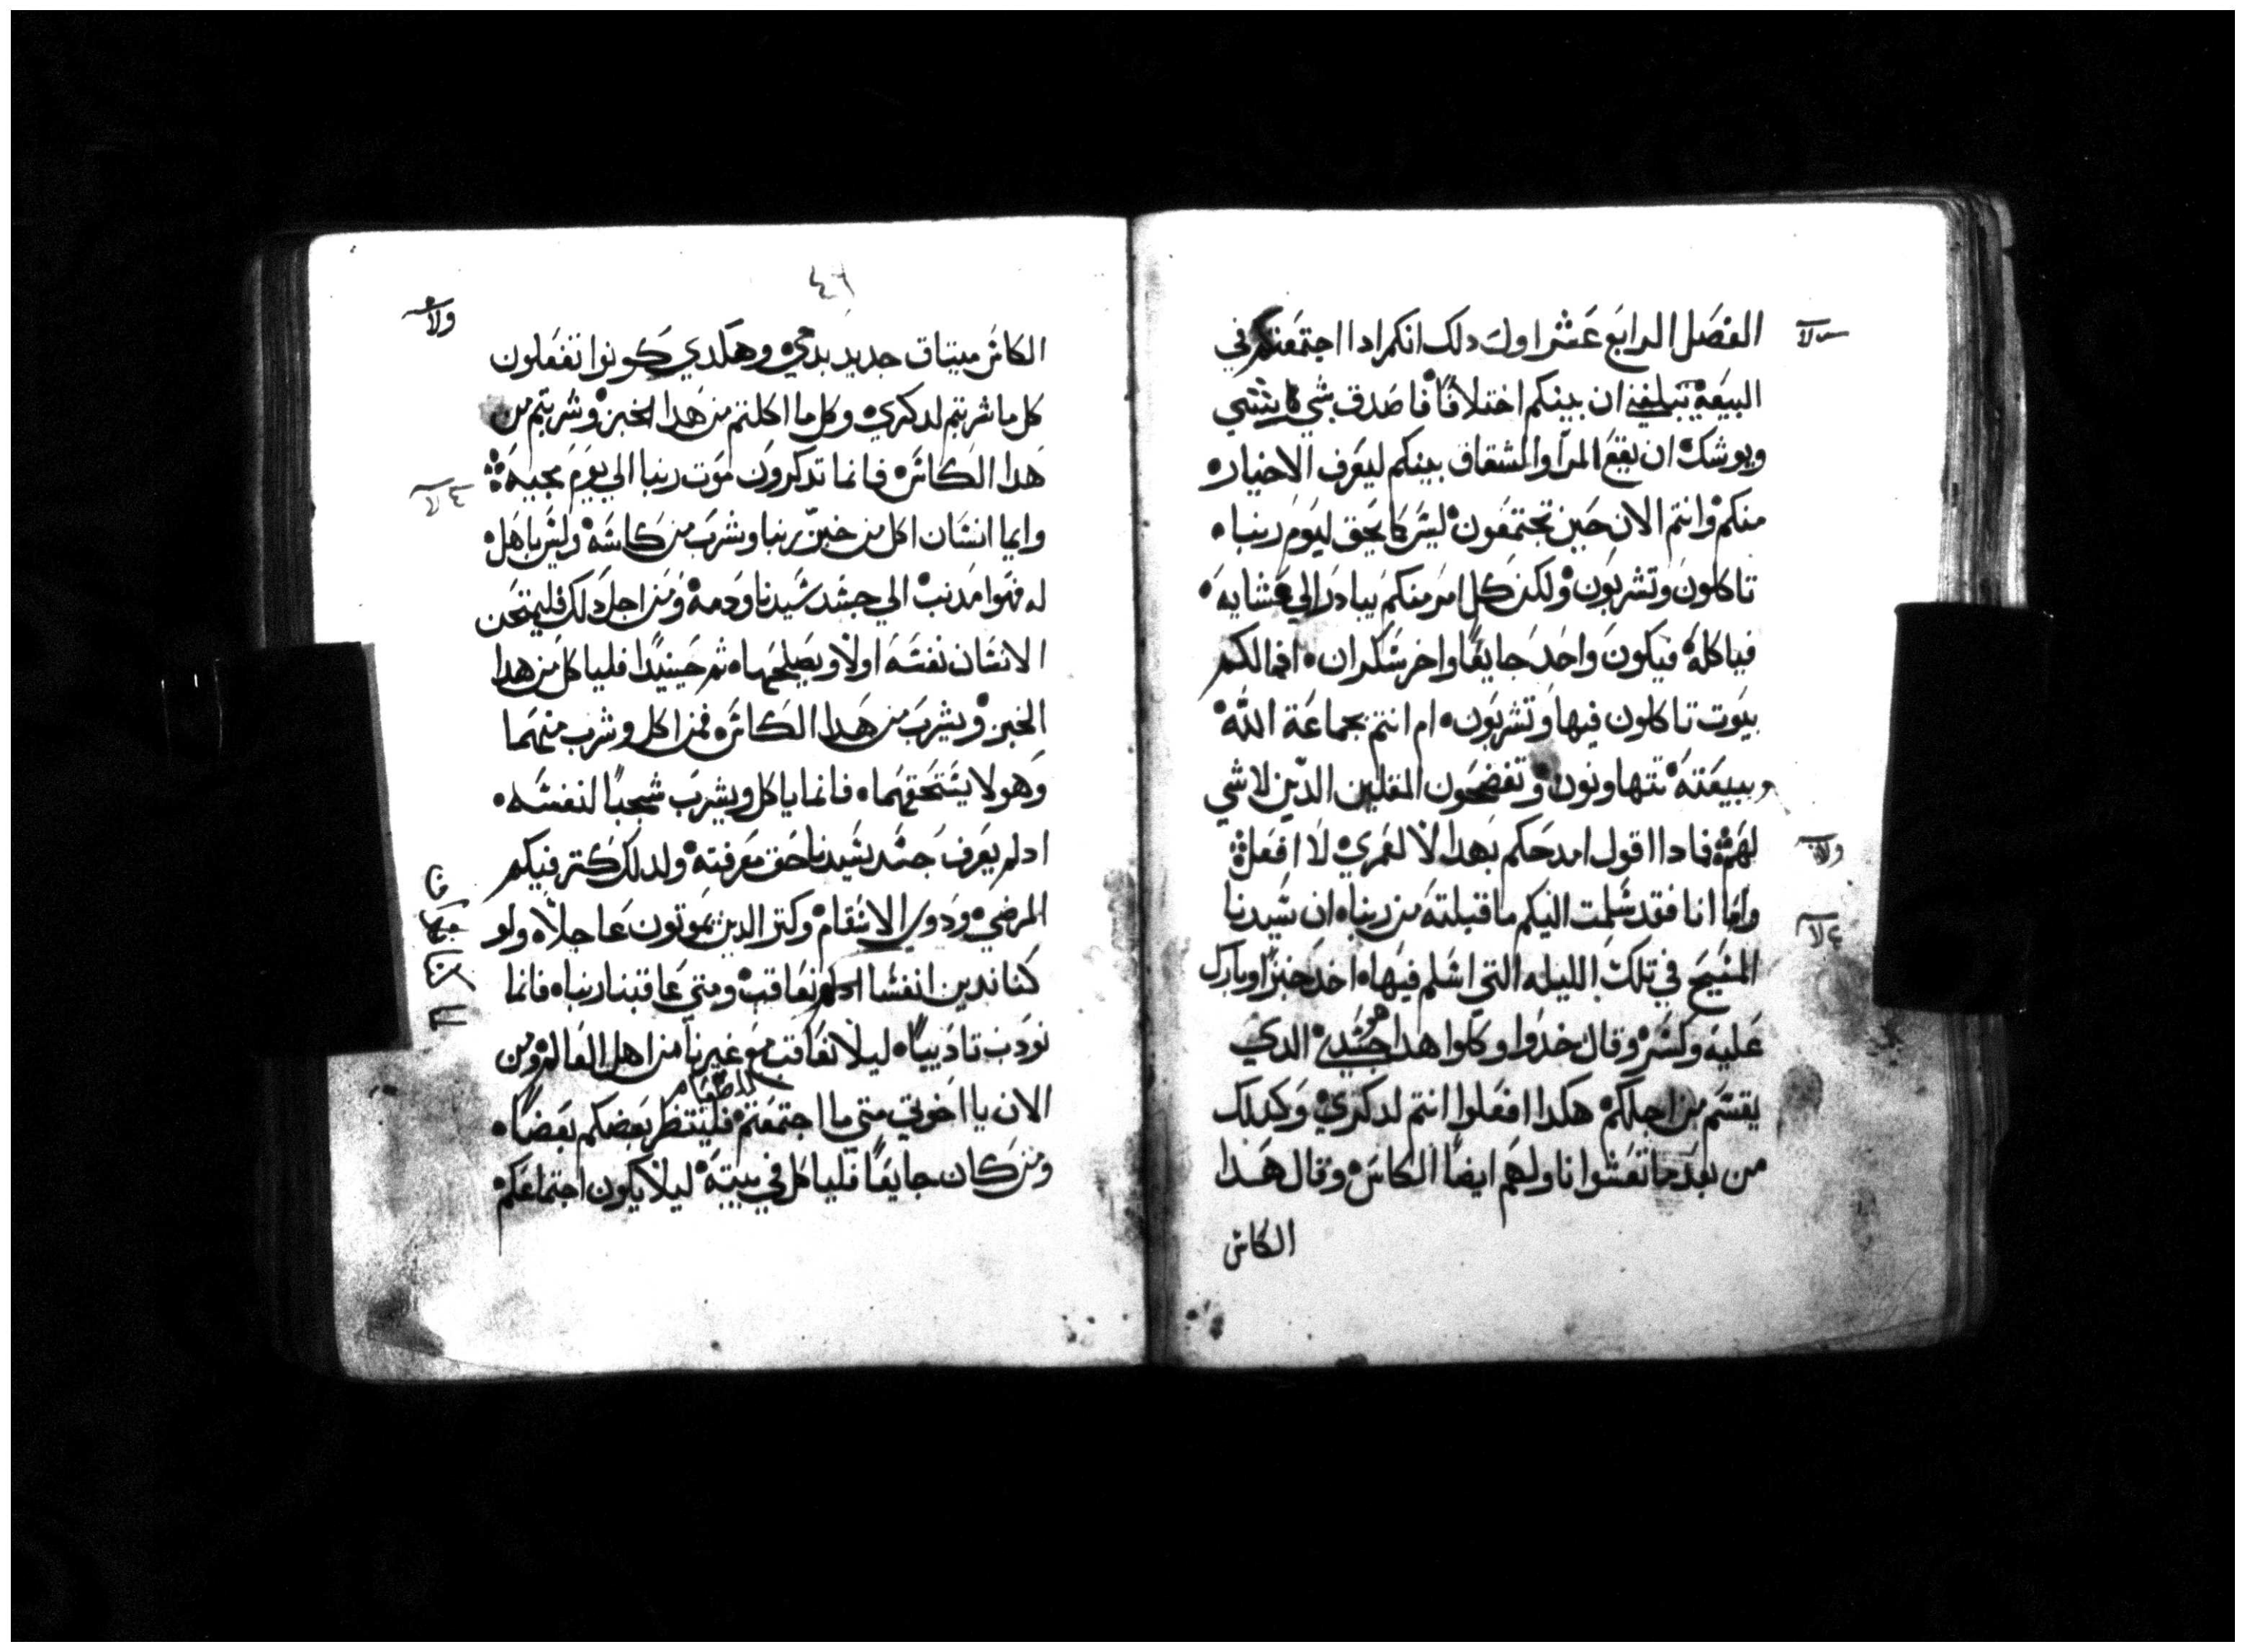 الفصل الرابع عشر اول دلك انكم ادا اجتمعتم في
البيعة تبلغني ان بينكم اختلافا فاصدق شي
ويوشك ان يقع المرا والمشقاق بينكم ليعرف الاخيار
منكم وانتم الان حين تجتمعون ليس كما يحق ليوم ربنا
تاكلون وتشربون ولكن كل امر منكم يبادر الي عشايه
فياكله فيكون واحد جايعا واخر سكران افما لكم
بيوت تاكلون فيها وتشربون ام انتم بجماعة الله
وببيعته تتهاونون وتفضحون المقلين الدين لا شي
لهم فمادا اقول امدحكم بهدا لا لعمري لا افعل
واما انا فقد سلمت اليكم ما قبلته من ربنا ان سيدنا
المسيح في تلك الليله التي اسلم فيها اخد خبزا وبارك
عليه وكسر وقال خدوا وكلوا هدا هو جسدي الدي
يقسم من اجلكم هكدا افعلوا انتم لدكري وكدلك
من بعد ما تعشوا ناولهم ايضا الكاس وقال هدا
الكاس
٤٦
الكاس ميتاق جديد بدمي وهكدي كونوا تفعلون
كل ما شربتم لدكري وكل ما اكلتم من هدا الخبز وشربتم من
هدا الكاس فانما تدكرون موت ربنا الي يوم مجيه
وايما انسان اكل من خبز ربنا وشرب من كاسه وليس باهل
له فهوا مدنب الي جسد سيدنا ودمه ومن اجل دلك فليمتحن
الانسان نفسه اولا ويصلحها ثم حينيدا فلياكل من هدا
الخبز ويشرب من هدا الكاس فمن اكل وشرب منهما
وهو لا يستحقهما فانما ياكل ويشرب شجبا لنفسه
ادلم يعرف جسد سيدنا حق معرفته ولدلك كتر فيكم
المرضي ودوي الاسقام وكتر الدين يموتون عاجلا ولو
كنا ندين انفسنا ادلم نعاقب ومتي عاقبنا ربنا فانما
نودب تاديبا ليلا نعاقب مع غيرنا من اهل العالم ومن
الان يا اخوتي متي ما اجتمعتم للطعام فلينتظر بعضكم بعضا
ومن كان جايعا فلياكل في بيته ليلا يكون اجتماعكم